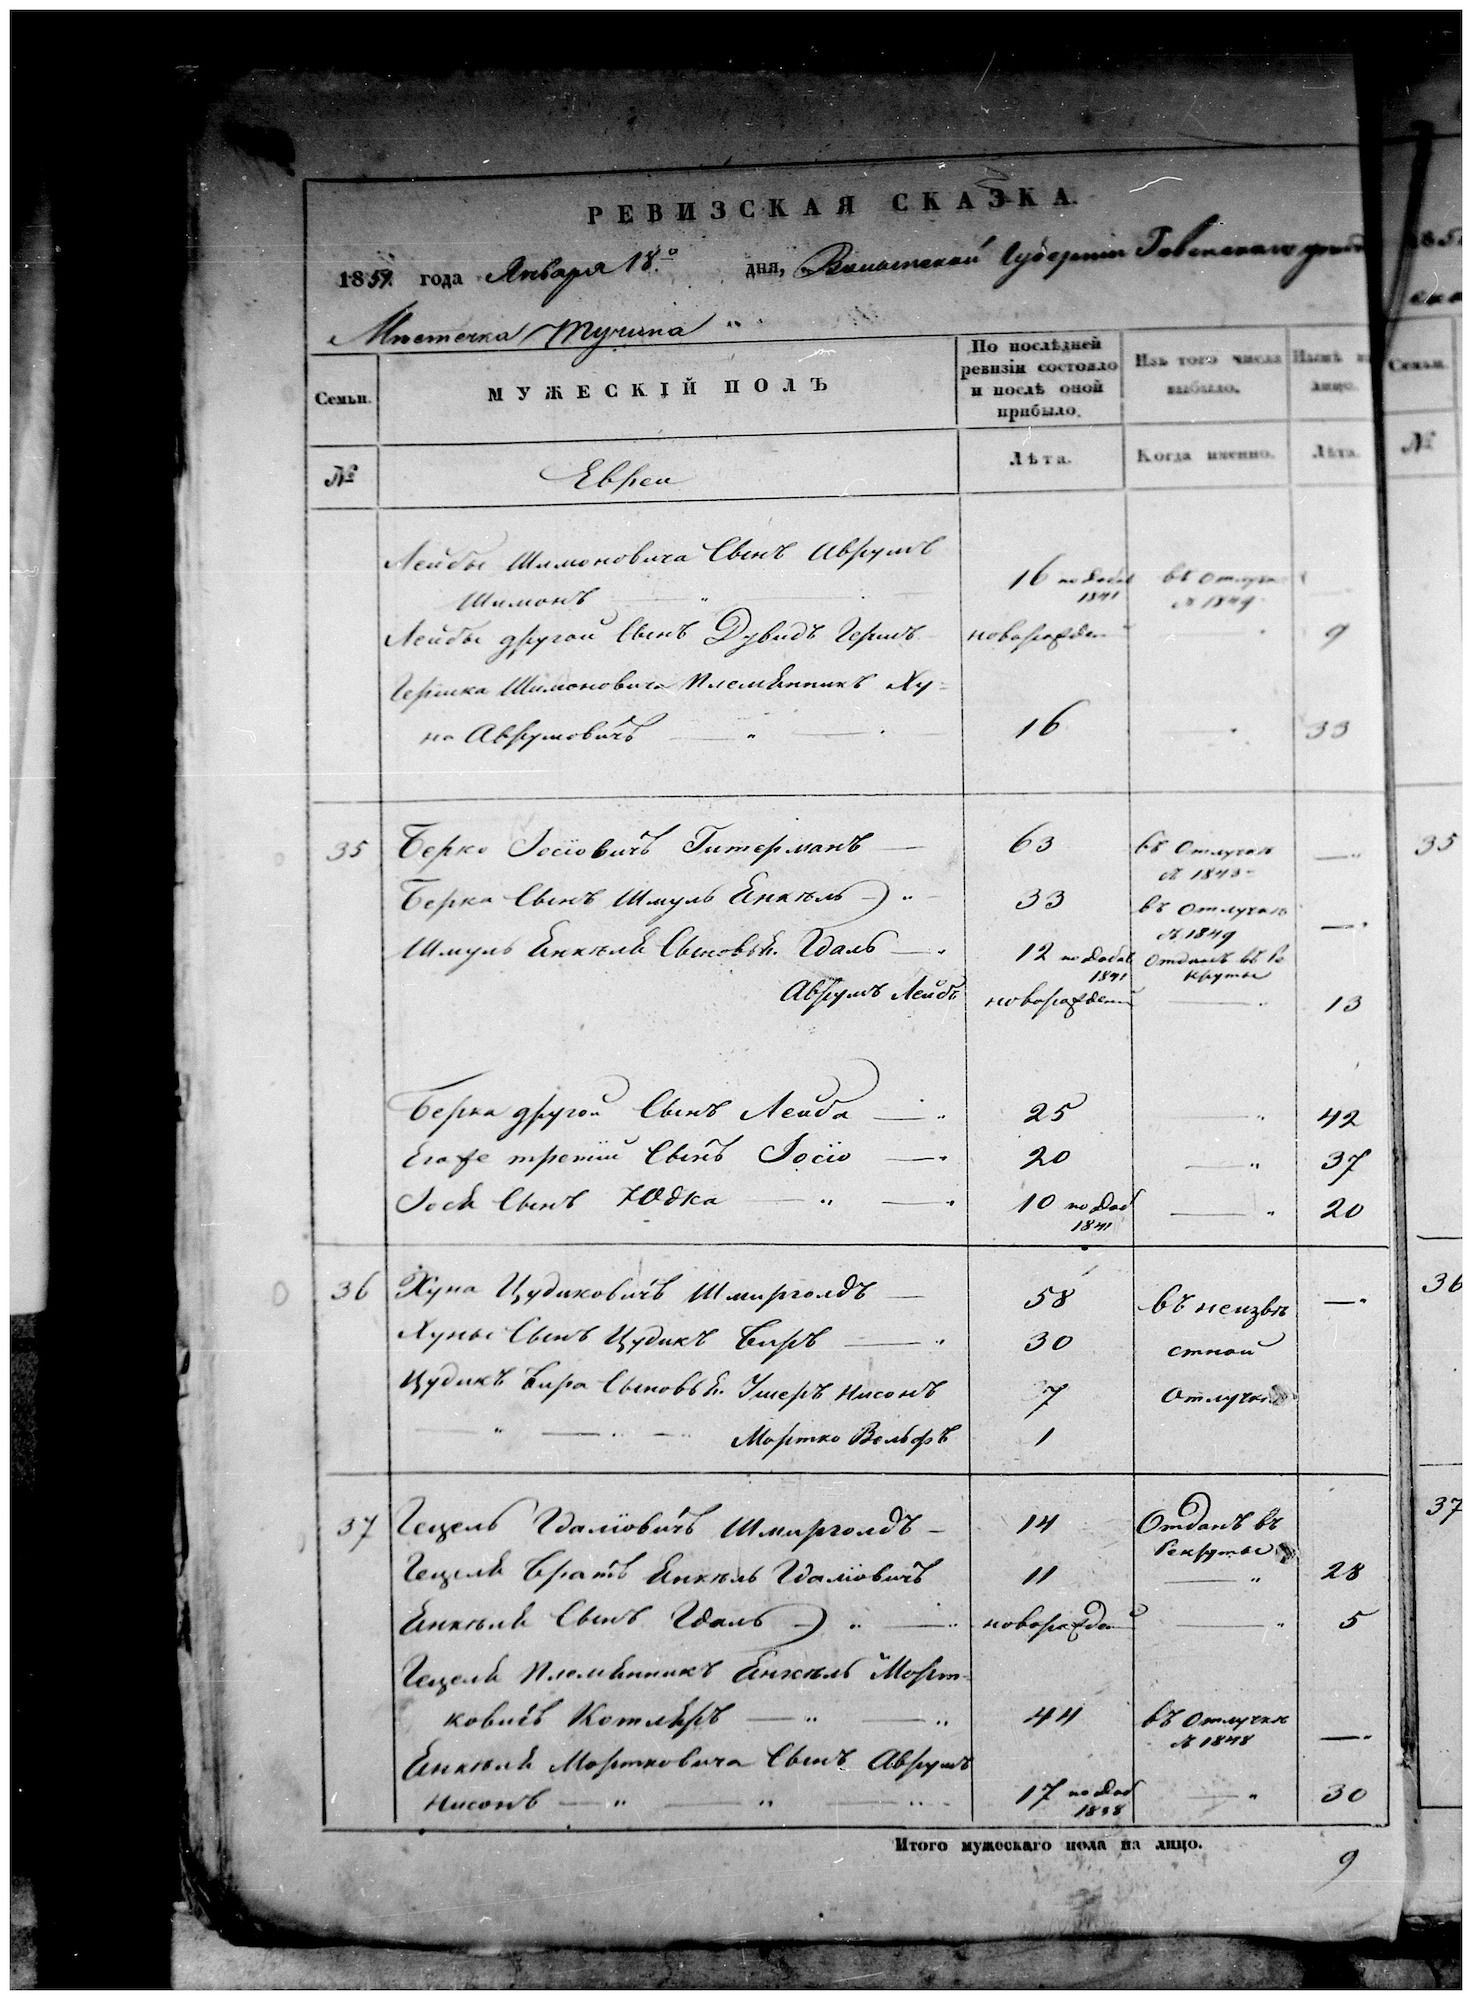 РЕВИЗСКАЯ СКАЗКА.
1851 года Января 18.го дня, Волынской Губернии Ровенского уезда
Местечка Тучина "
Семьи. МУЖЕСКІЙ ПОЛЪ
По послѣдней ревизіи состояло и послѣ оной прибыло.
Изъ того числа выбыло.
Нынѣ на лицо.
Семьи.
№ Евреи Лѣта. Когда именно. Лѣта. №
Лейбы Шимоновича Сынъ Аврумъ
Шимонъ 16 по добав 1841 въ отлучке с 1849 —
Лейбы другой Сынъ Дувидъ Гершъ новорожден " 9
Гершка Шимоновича Племянникъ Ху=
на Аврумовичъ — " — 16 — " 33
35 Берко Іосіовичъ Гитерманъ — 63 въ Отлучке с 1843 — " 35
Берка Сынъ Шмуль Янкель — " 33 въ Отлучке с 1849 — "
Шмуль Янкеля Сыновья. Гдаль — " 12 по добав 1841 Отданъ въ Рекруты
Аврумъ Лейбъ новорожденный — " 13
Берка другой Сынъ Лейба — " 25 " 42
Егоже третій Сынъ Іосіо — " 20 — " 37
Іося Сынъ Юдка — " — " 10 по доб 1841 — " 20
36 Хуна Цудиковичъ Шмирголдъ — 58 въ неизве — " 36
Хуны Сынъ Цудикъ Беръ — " 30 стной
Цудикъ Бера Сыновья. Ушеръ Нисонъ 7 Отлучке
— " — " — Мортко Вольфъ 1
37 Гецель Гдаліовичъ Шмирголдъ — 14 Отданъ въ Рекруты 37
Гецеля Братъ Янкель Гдаліовичъ 11 — " 28
Янкеля Сынъ Гдаль — " — " новорожден — " 5
Гецеля Племянникъ Янкель Морт-
ковичъ Котляръ — " — " 44 въ Отлучке с 1848 — "
Янкеля Мортковича Сынъ Аврумъ
Нисонъ — " — " — " 17 по доб 1838 — " 30
Итого мужескаго пола на лицо.
9